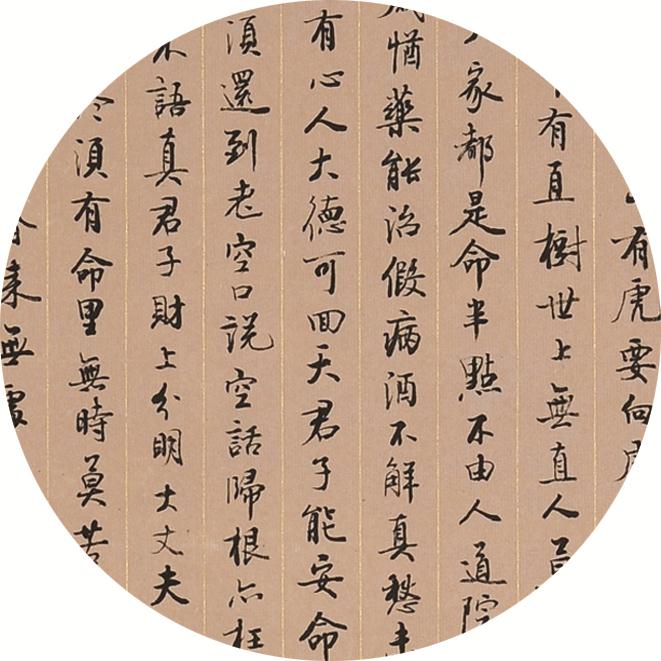 有虎要向
有直樹世上無直人
家都是命半點不由人道院
惜藥能治假病酒不解真愁
有心人大德可回天君子能安命
須還到老空口説空話歸根亦枉
語真君子財上分明大丈夫
須有命里無時莫苦
來無